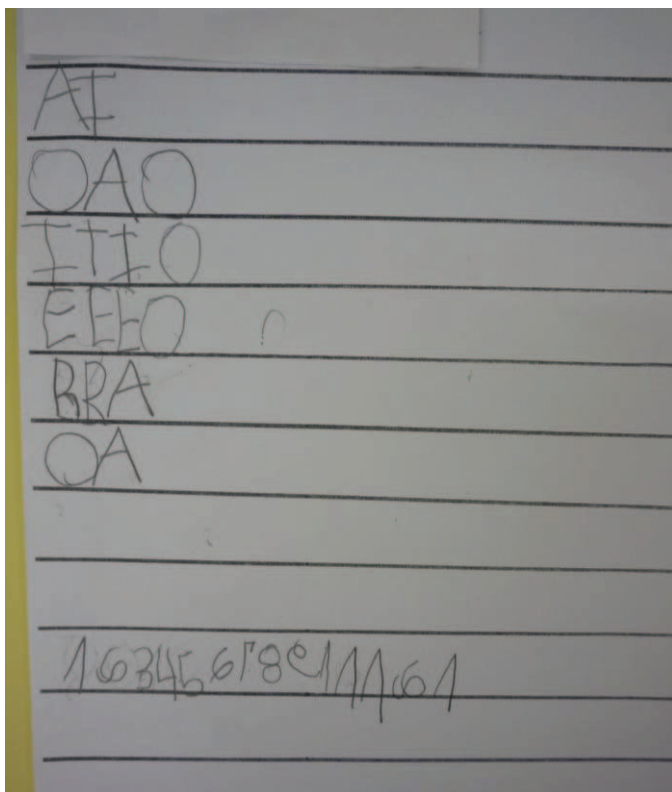 AI
OAO
ITIO
EEEO
RRA
OA
16345678e111161